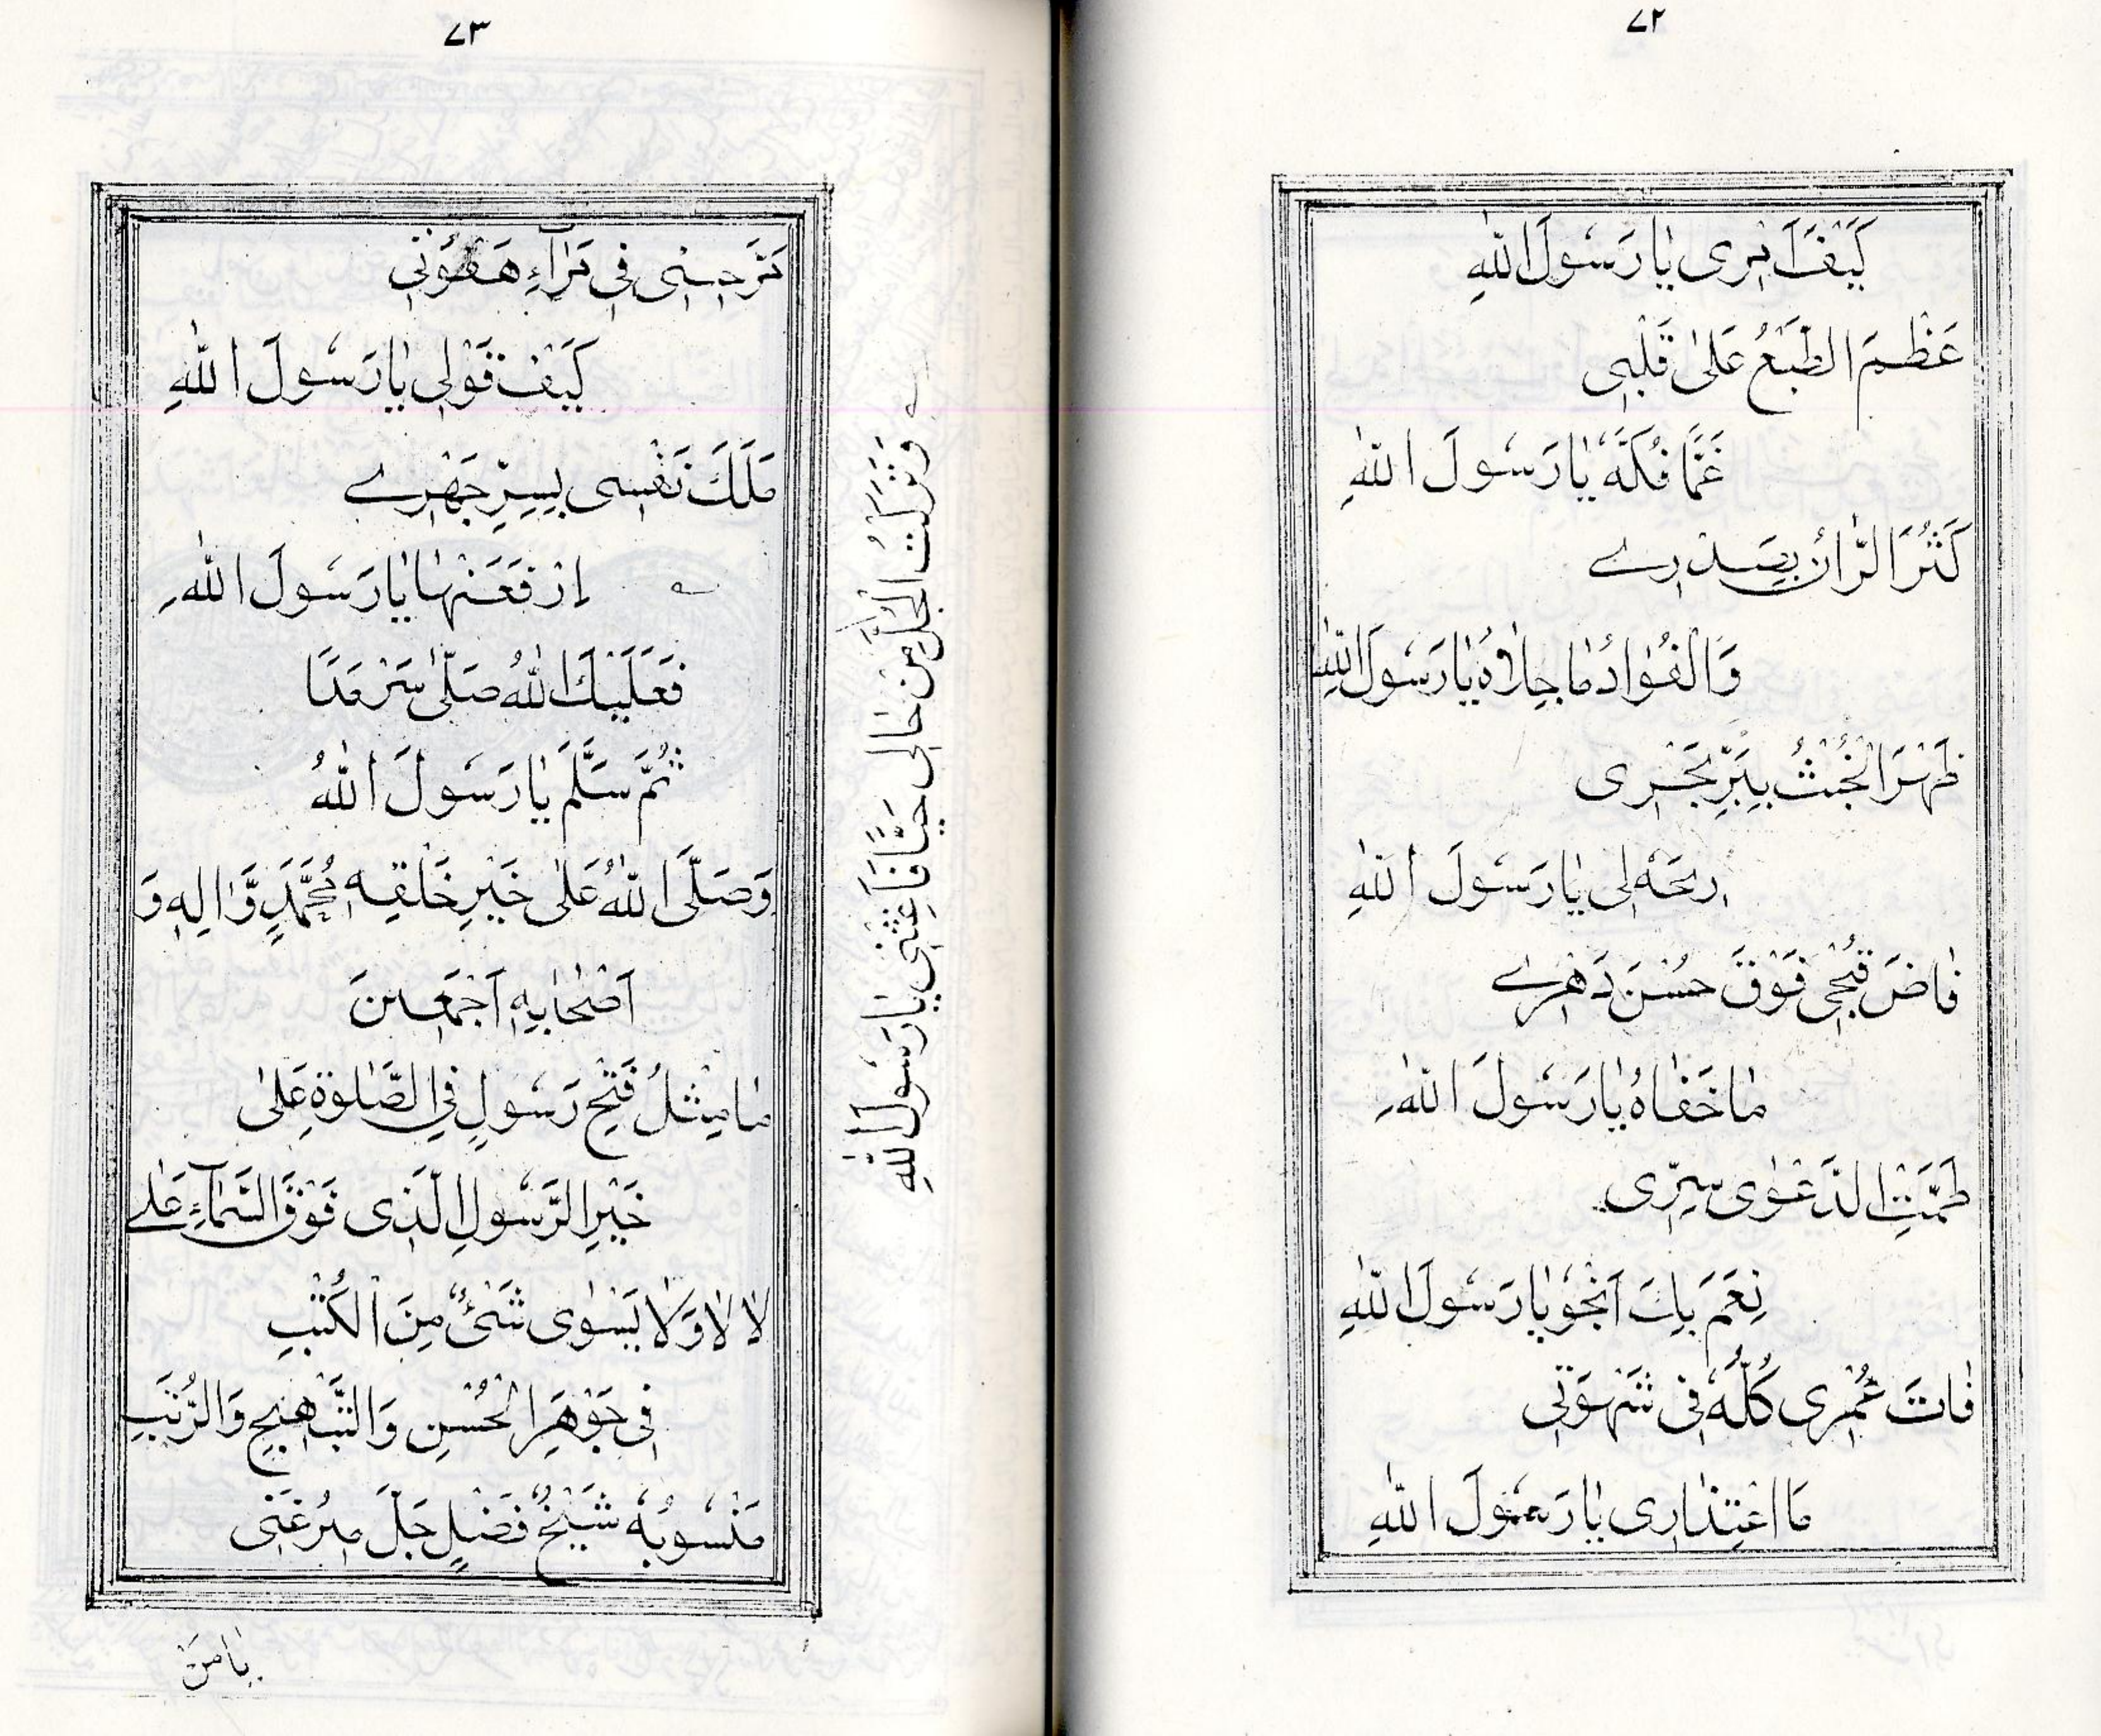 ٧٢
كَيْفَ اَبْرِى يَا رَسُولَ اللهِ
عَظُمَ الطَّبْعُ عَلىٰ قَلْبِى
غَمًّا فُكَّهُ يَا رَسُولَ اللهِ
كَثُرَ الرَّانُ بِصَدْرِے
وَالْفُوَادُ مَا جِلَاهُ يَا رَسُولَ اللهِ
ظَهَرَ الْخُبْثُ بِبَرِّ بَحْرِى
رِحَهُ لِى يَا رَسُولَ اللهِ
فَاضَ قُبْحِى فَوْقَ حُسْنَ دَهْرِے
مَا خَفَاهُ يَا رَسُولَ اللهِ
طَمَّتِ الدَّعْوٰى سِرِّى
نِعَمَ بِكَ اَنْجُو يَا رَسُولَ اللهِ
فَاتَ عُمْرِى كُلُّهُ فِى شَهْوَتِى
مَا اعْتِذَارِى يَا رَسُولَ اللهِ
٧٣
فِى هَفْوَتِى
كَيْفَ قَوْلِى يَا رَسُولَ اللهِ
مَلَكَ نَفْسِى بِسِرِّ جَهْرِے
اِرْفَعَنْهَا يَا رَسُولَ اللهِ
فَعَلَيْكَ اللهُ صَلّٰى سَرْمَدَا
ثُمَّ سَلَّمَ يَا رَسُولَ اللهُ
وَصَلَّى اللهُ عَلىٰ خَيْرِ خَلْقِهٖ مُحَمَّدٍ وَّاٰلِهٖ وَ
اَصْحَابِهٖ اَجْمَعِينَ
مَا مِثْلُ فَتْحِ رَسُولٍ فِى الصَّلٰوةِ عَلىٰ
خَيْرِ الرَّسُولِ الَّذِى فَوْقَ السَّمَآءِ عَلے
لَا لَا وَلَا يَسْوٰى شَئٌ مِنَ الْكُتُبِ
فِى جَوْهَرِ الْحُسْنِ وَالتَّبْهِيجِ وَالرُّتَبِ
مَنْسُوبُهُ شَيْخُ فَضْلٍ جَلَّ مِرْغَنِى
وَتَرَكْتُ الْجُلَّ مِنْ حَالِى حَيًّا فَاَغِثْنِى يَا رَسُولَ اللهِ
يَا مَنْ